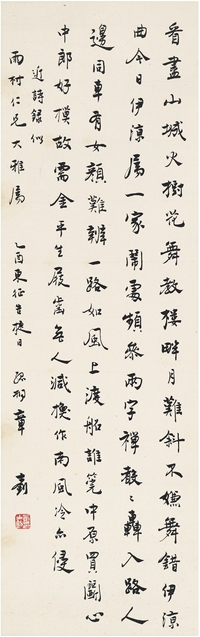 看盡山城火樹花舞教樓畔月難斜不嫌舞錯伊涼
曲今日伊涼屬一家鬧處頻參兩字禪轟入路人
邊同車有女顏難辨一路如風上渡船誰中原買鬬心
中郎好模故需金平生屐齒無人減換作南風冷亦侵
近詩錄似
雨村仁兄大雅屬 乙酉東征告捷日 孤桐章士釗